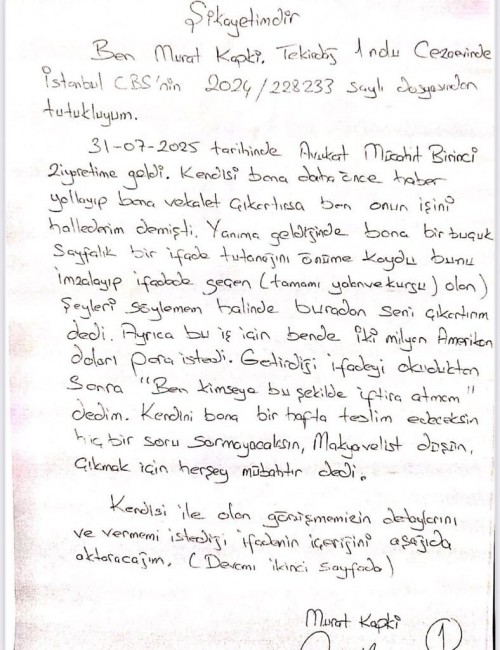 Şikayetimdir
Ben Murat Kapki. Tekirdağ 1 nolu Cezaevinde
İstanbul CBS'nin 2024/228233 sayılı dosyasından
tutukluyum.
31-07-2025 tarihinde Avukat Mücahit Birinci
ziyaretime geldi. Kendisi bana daha önce haber
yollayıp bana vekalet çıkartırsa ben onun işini
hallederim demişti. Yanıma geldiğinde bana bir buçuk
sayfalık bir ifade tutanağını önüme koydu bunu
imzalayıp ifadede geçen (tamamı yalan ve kurgu) olan)
şeyleri söylemem halinde buradan seni çıkartırım
dedi. Ayrıca bu iş için bende iki milyon Amerikan
doları para istedi. Getirdiği ifadeyi okuduktan
sonra "Ben kimseye bu şekilde iftira atmam"
dedim. Kendini bana bir hafta teslim edeceksin
hiç bir soru sormayacaksın, Makyavelist düşün,
çıkmak için herşey mübahtır dedi.
Kendisi ile olan görüşmemizin detaylarını
ve vermemi istediği ifadenin içeriğini aşağıda
aktaracağım. (Devamı ikinci sayfada)
Murat Kapki
1